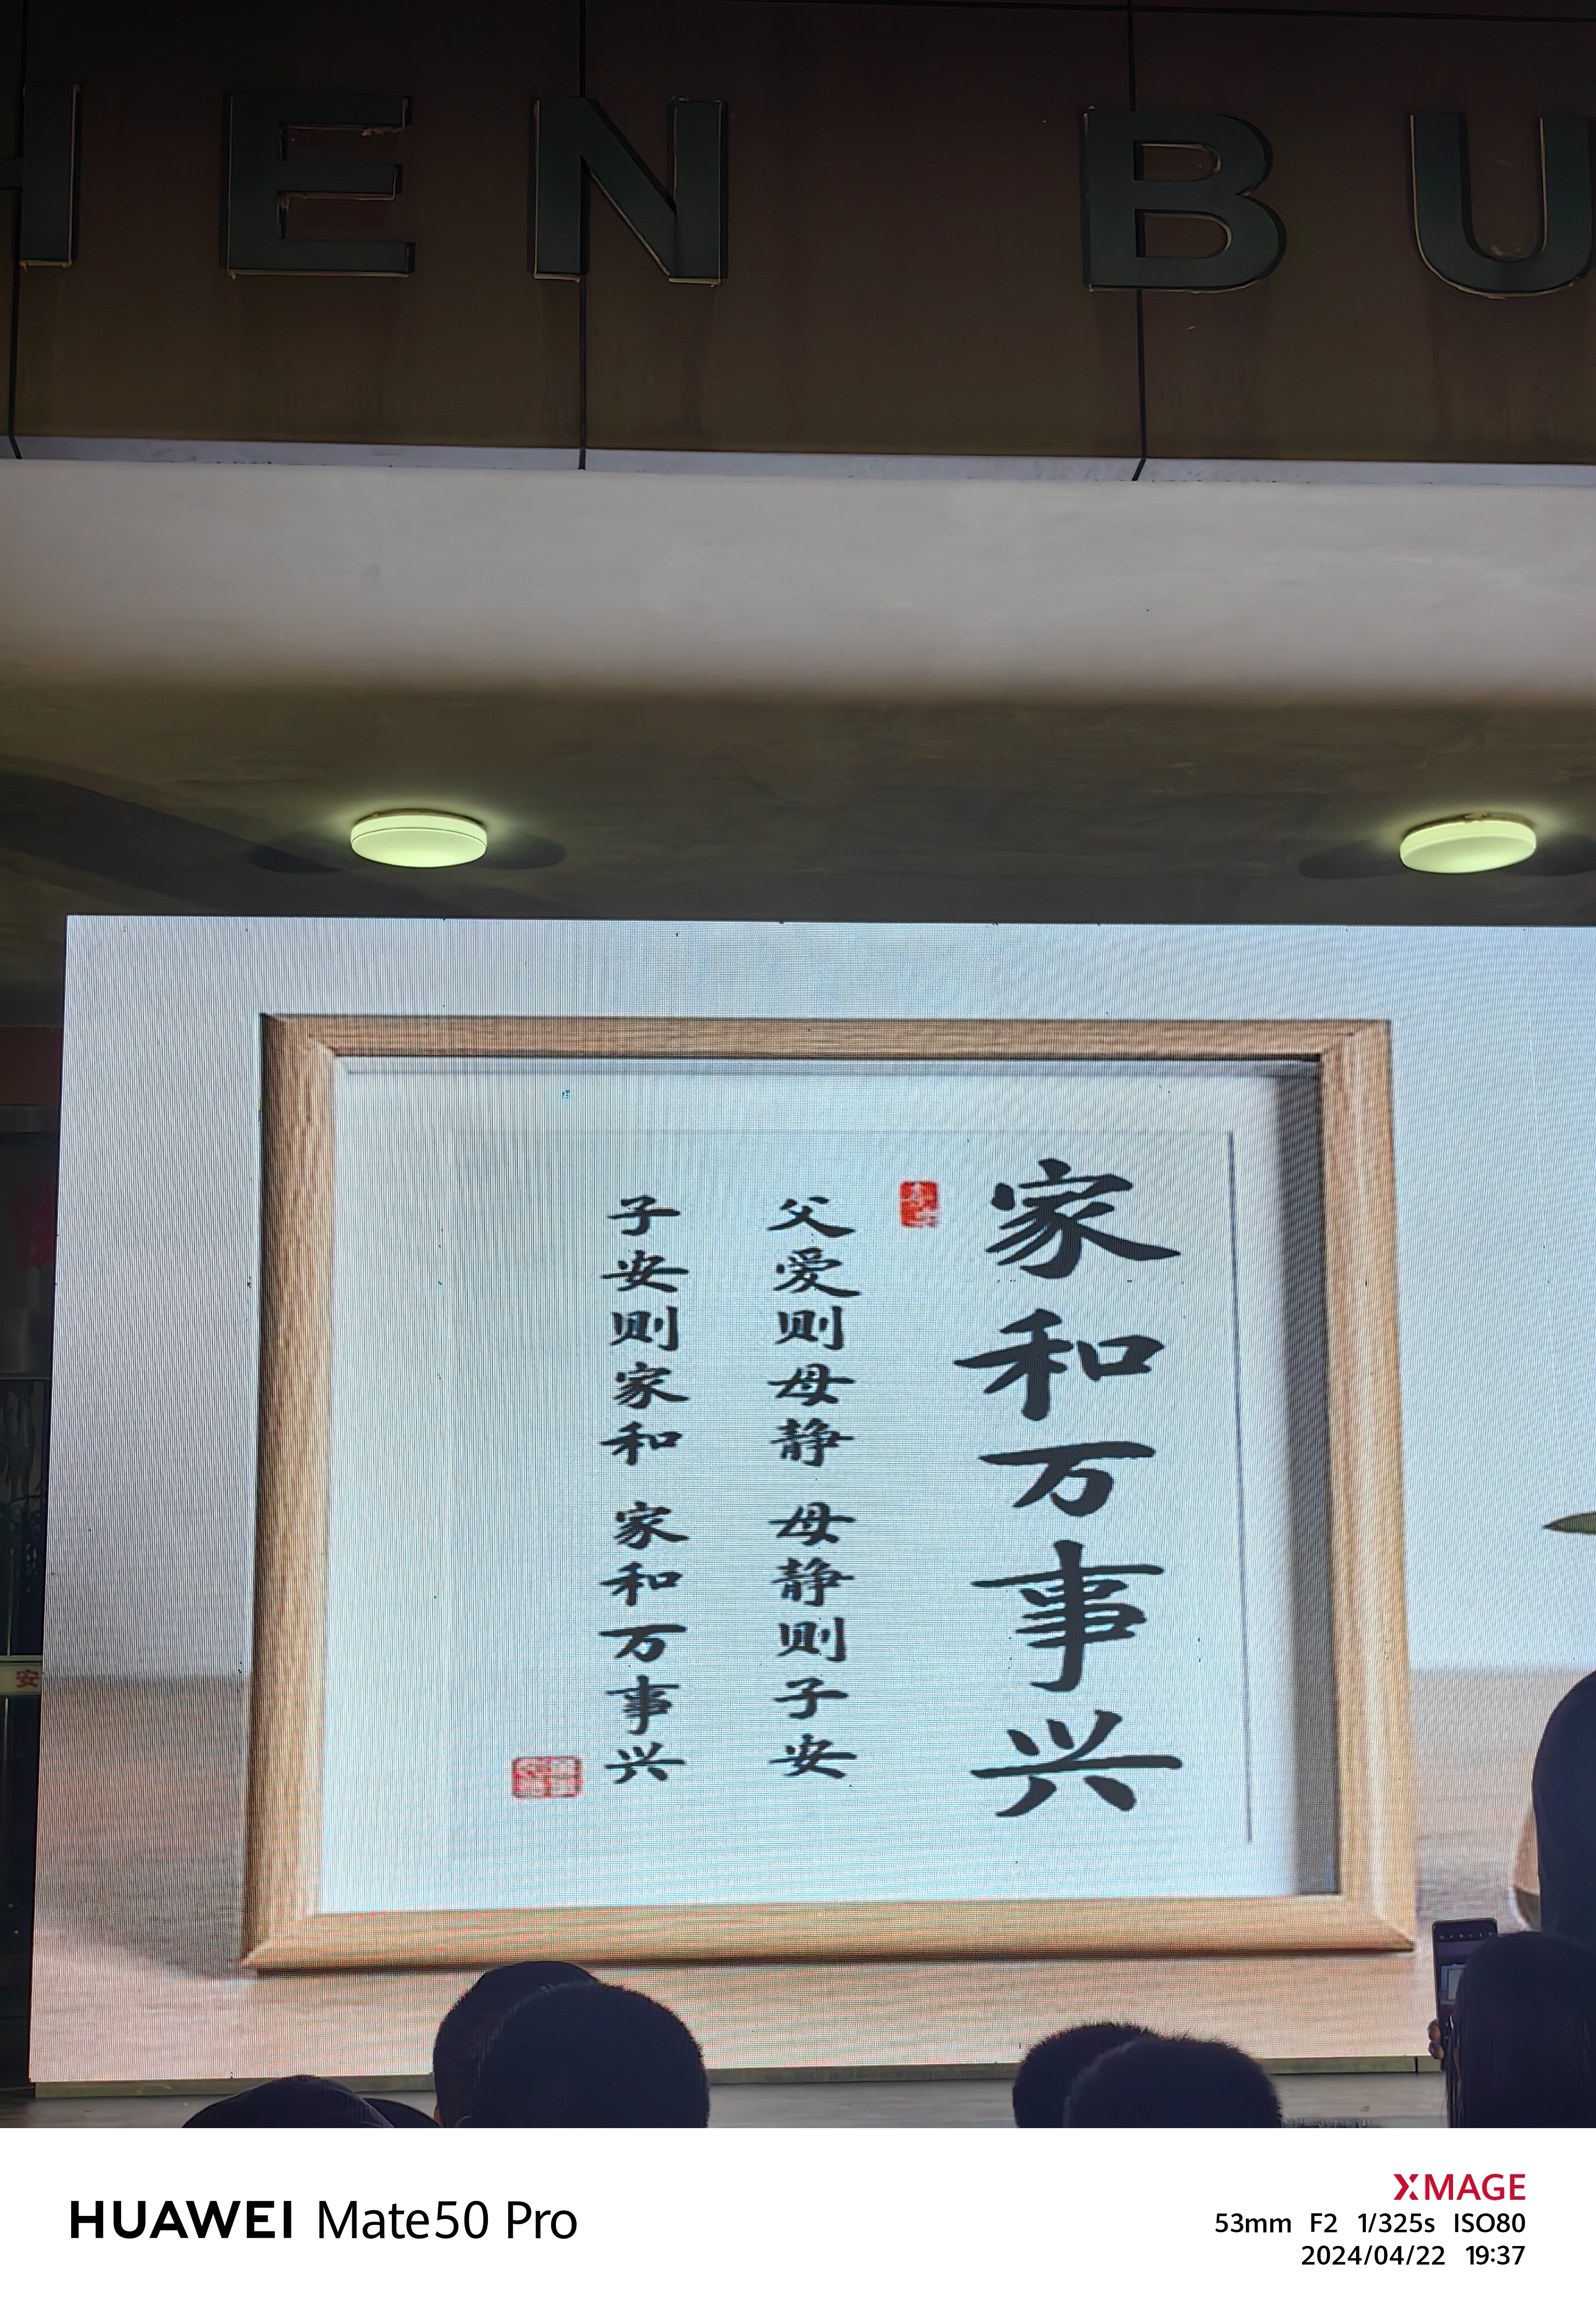 HEN BU
家和万事兴
父爱则母静 母静则子安
子安则家和 家和万事兴
安
HUAWEI Mate50 Pro
XMAGE
53mm F2 1/325s ISO80
2024/04/22 19:37